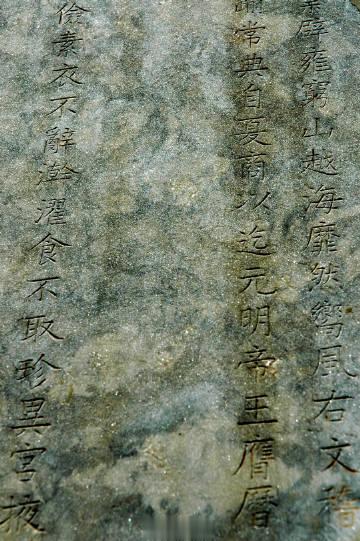 辟雍窮山越海靡然嚮風右文稽
常典自夏商以迄元明帝王膺曆
儉素衣不辭澣濯食不取珍異宮掖